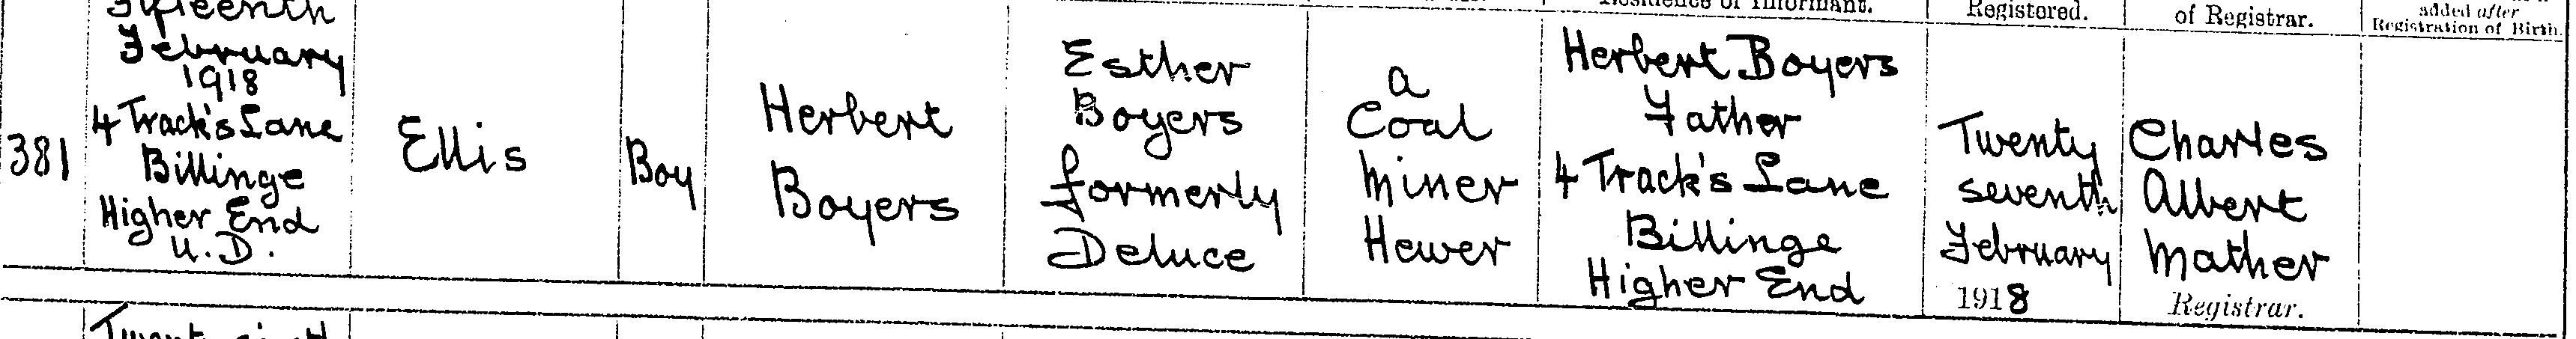 Residence of Informant.
Registered.
of Registrar.
added after
Registration of Birth.
381
Fifteenth
February
1918
4 Track's Lane
Billinge
Higher End
U.D.
Ellis
Boy
Herbert
Boyers
Esther
Boyers
formerly
Deluce
a
Coal
Miner
Hewer
Herbert Boyers
Father
4 Track's Lane
Billinge
Higher End
Twenty
seventh
February
1918
Charles
Albert
Mather
Registrar.